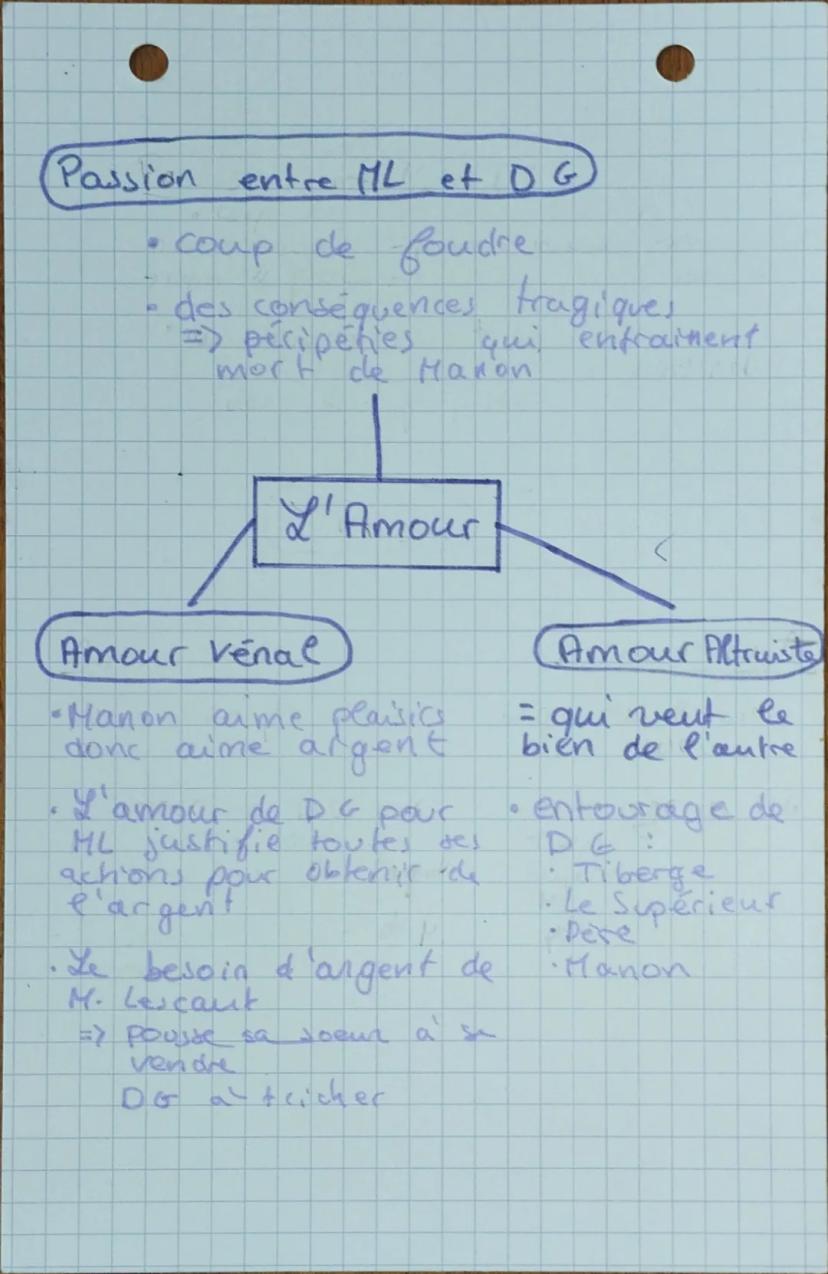 Passion entre ML et DG
• coup de foudre
• des conséquences tragiques
=> péripéties qui entrainent
mort de Manon
L'Amour
Amour Vénal
• Manon aime plaisirs
donc aime argent
• L'amour de DG pour
ML justifie toutes ses
actions pour obtenir de
l'argent
• Le besoin d'argent de
M. Lescaut
=> pousse sa soeur à se
vendre
DG à tricher
Amour Altruiste
= qui veut le
bien de l'autre
• entourage de
DG :
• Tiberge
• Le Supérieur
• Père
• Manon